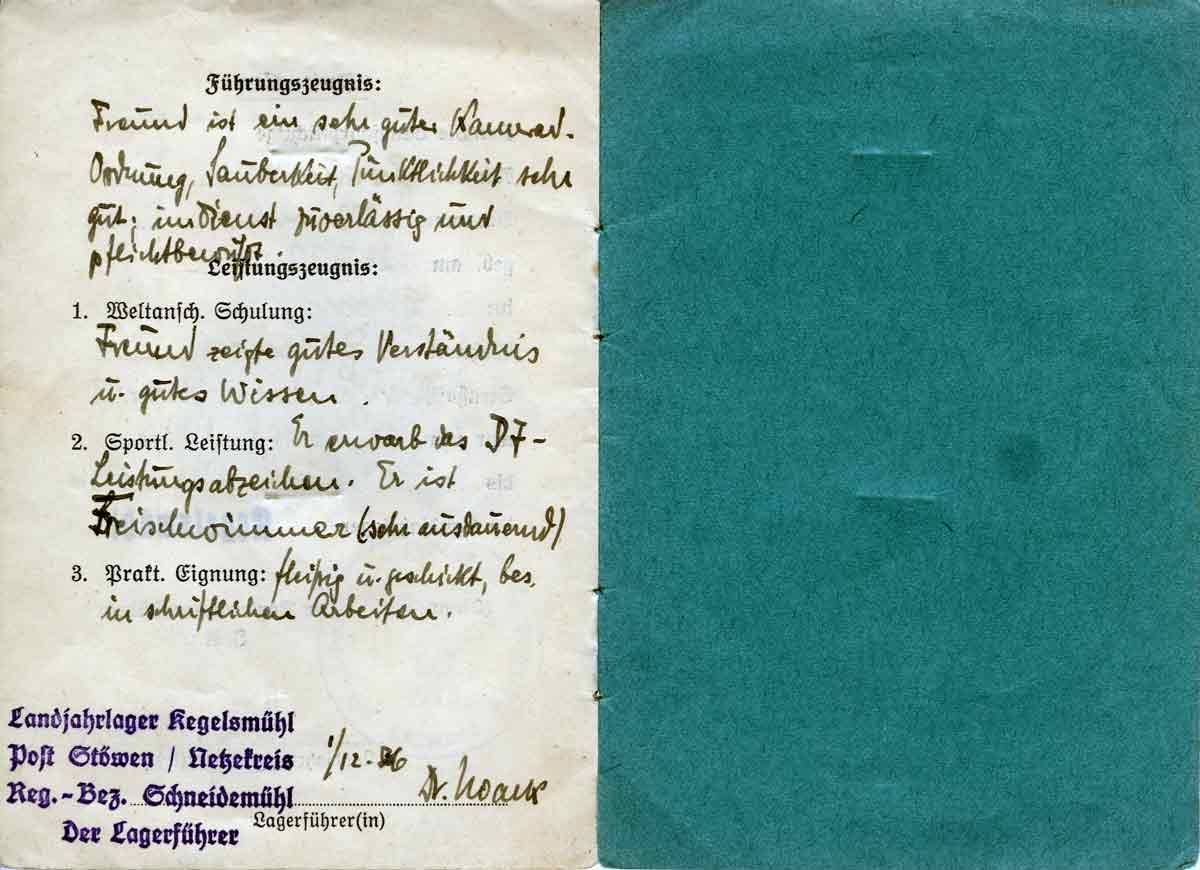 Führungszeugnis:
Freund ist ein sehr guter Kamerad.
Ordnung, Sauberkeit, Pünktlichkeit sehr
gut; im Dienst zuverlässig und
pflichtbewußt.
Leistungszeugnis:
1. Weltansch. Schulung:
Freund zeigte gutes Verständnis
u. gutes Wissen.
2. Sportl. Leistung: Er erwarb das DJ-
Leistungsabzeichen. Er ist
Freischwimmer (sehr ausdauernd)
3. Prakt. Eignung: fleißig u. geschickt, bes.
in schriftlichen Arbeiten.
Landjahrlager Kegelsmühl
Post Stöwen / Netzekreis 1/12-36
Reg.-Bez. Schneidemühl Dr. Noack
Der Lagerführer Lagerführer(in)